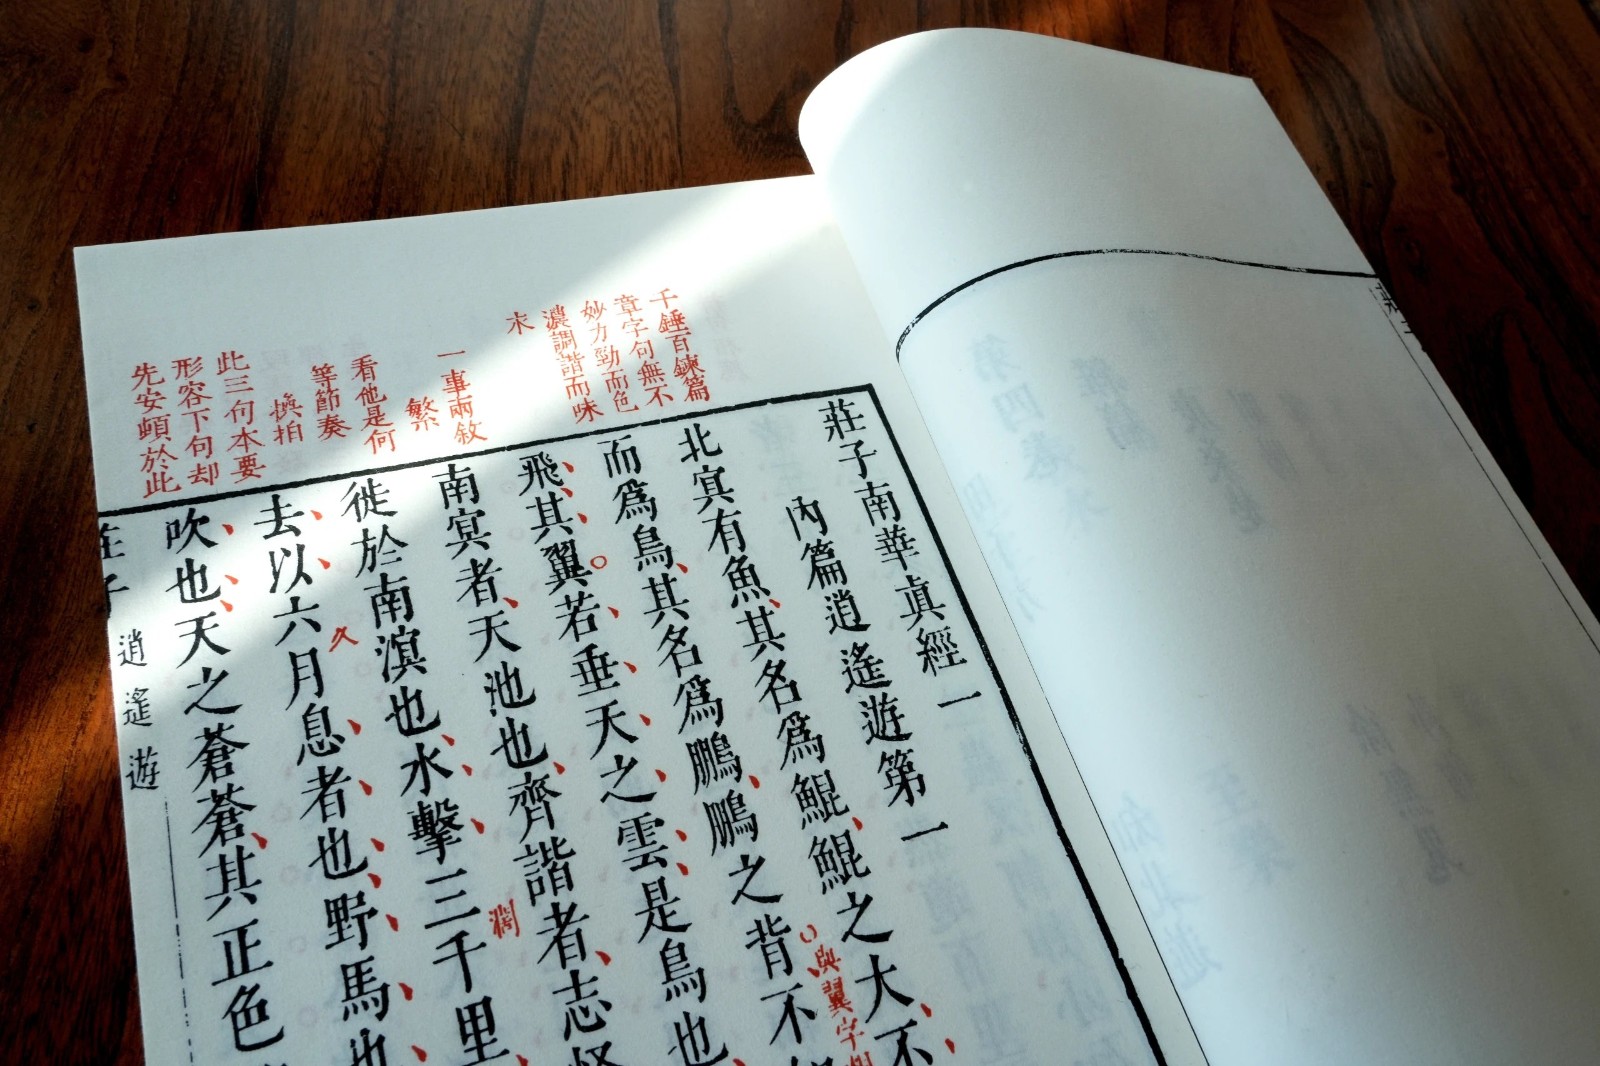 千錘百鍊篇
章字句無不
妙力勁而色
濃調諧而味
永
一事兩敘
繁
看他是何
等節奏
拍
此三句本要
形容下句却
先安頓於此
莊子南華眞經一
內篇逍遙遊第一
北㝠有魚其名爲鯤鯤之大不
與翼字
而爲鳥其名爲鵬鵬之背不
飛其翼若垂天之雲是鳥也
南㝠者天池也齊諧者志怪
徙於南溟也水擊三千里
去以六月息者也野馬也
吹也天之蒼蒼其正色
莊子 逍遙遊